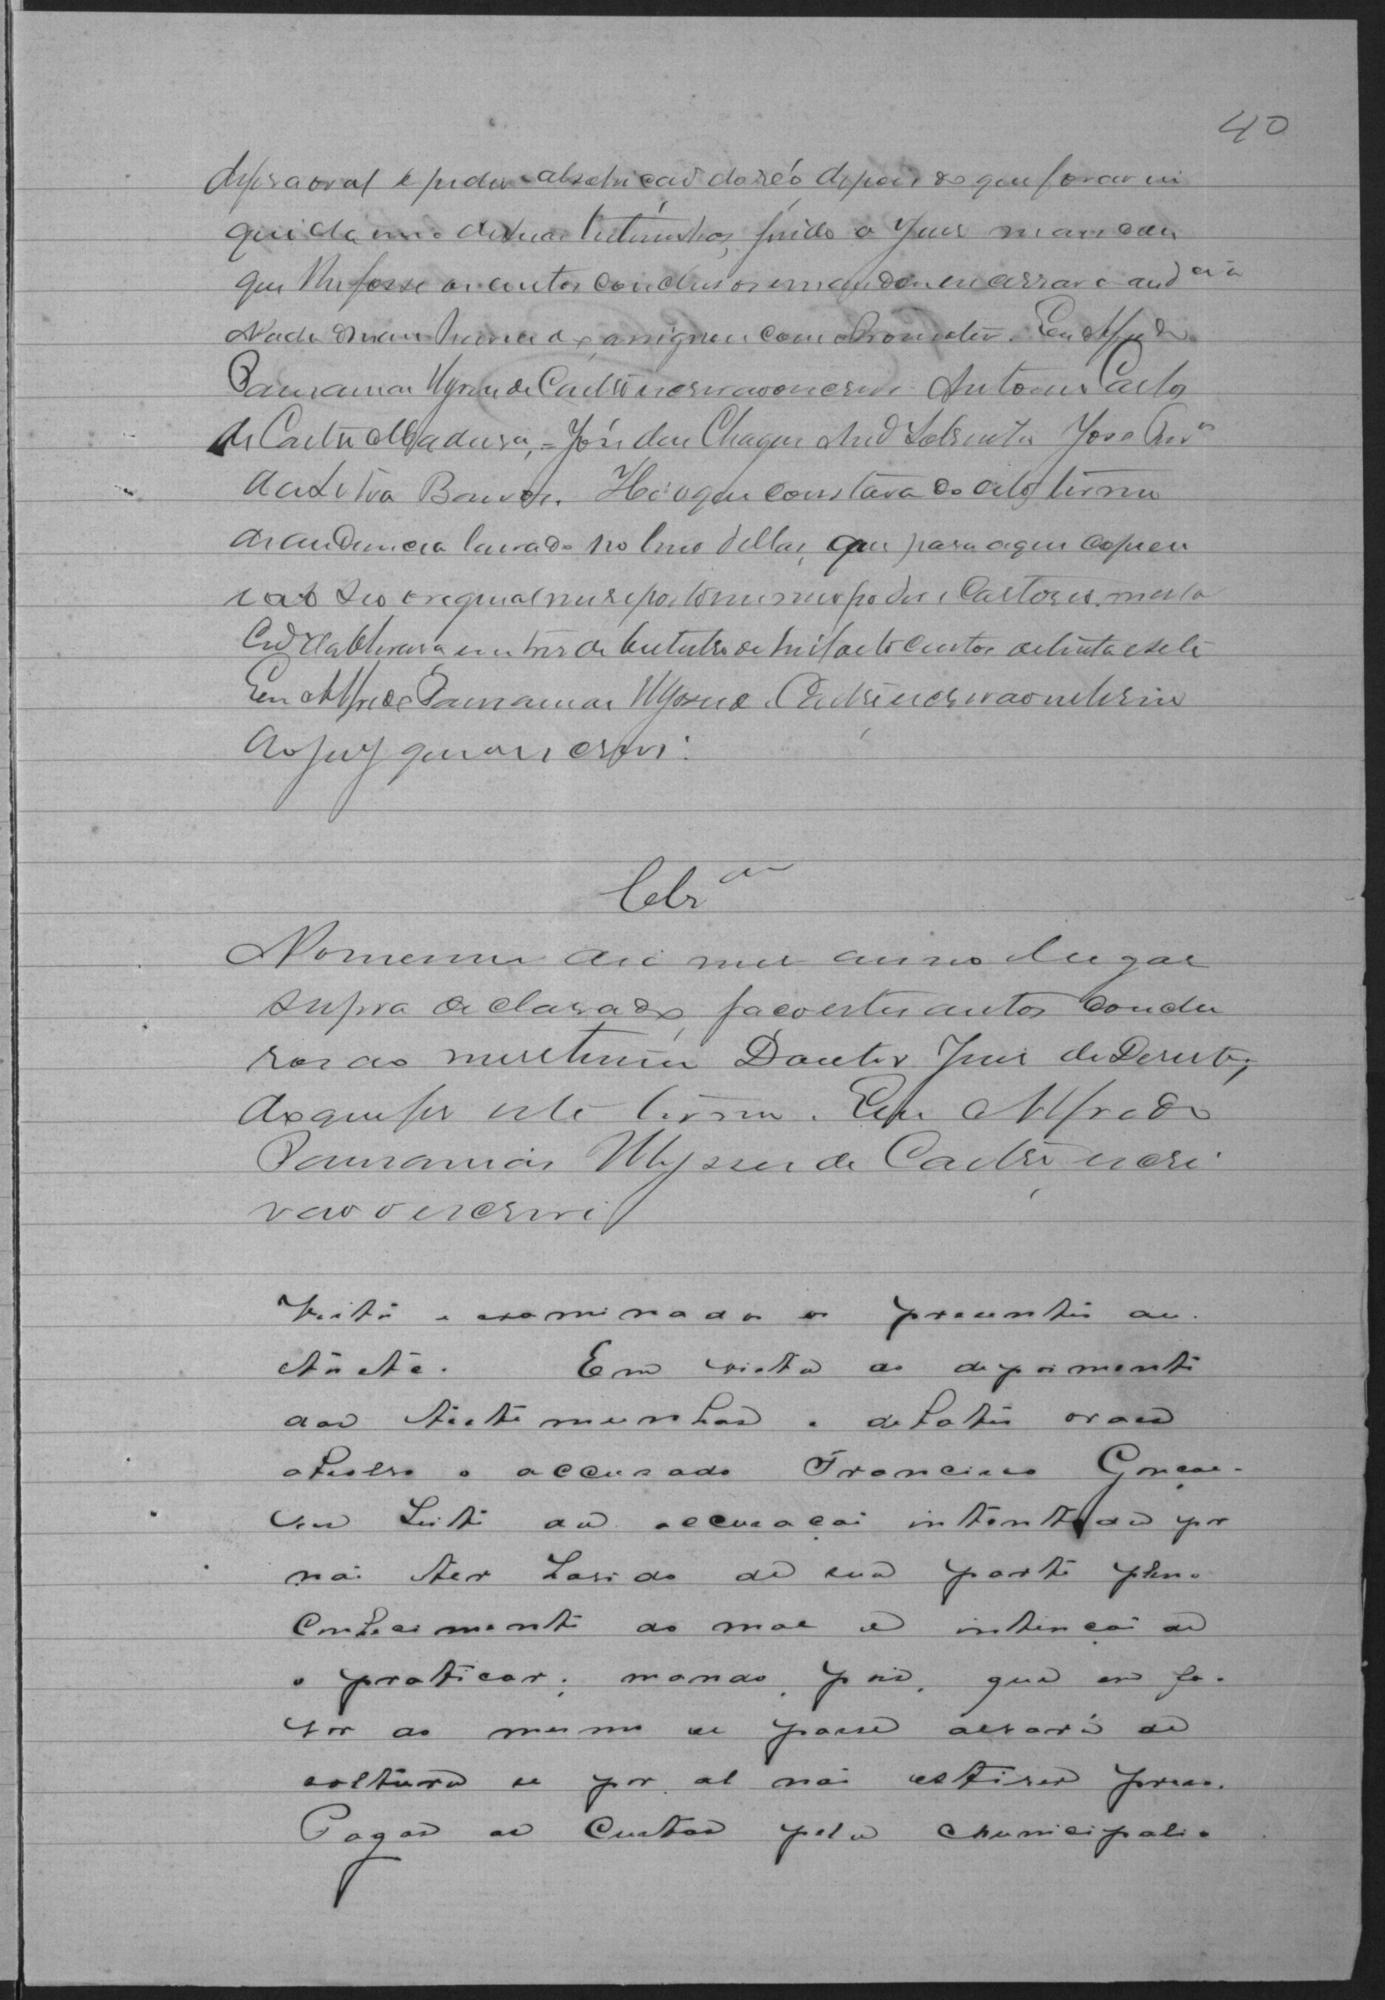 40
defesa oral e pediu absolvição do réo depois do que foram in
quidas duas testimunhas, findo o Juis mandou
que lhe fosse os autos conclusos e mandou encerrar a audcia
Nada mais havendo assignou com o Promotor. Eu Alfredo
Paranamas Ulysses de Castro escrivão o escrevi Antonio Carlos
de Castro Madeira, = José das Chagas José
da Silva Barros. He o que constava do dito termo
de audiencia lavrado no livro dellas, que para aqui copiei
do seo original me reporto em meo poder e Cartorio. nesta
em tres de Outubro de mil oitocentos oitenta e sete
Eu Alfredo Paranamas Ulysses de Castro escrivão interino
do jury que o escrevi.
Clsão
No mesmo dia mes anno e lugar
supra declarado, faço estes autos conclu
sos ao meretissimo Doutor Juis de Dereito;
do que fis este termo. Eu Alfredo
Paranamas Ulysses de Castro escri
vão o escrevi
Visto e examinados os presentes au
tos etc. Em vista do depoimento
das testemunhas e debates oraes
absolvo o accusado Francisco Gonçal-
ves Leite da accusação intentada por
não ter havido de sua parte pleno
conhecimento do mal e intenção de
o praticar; mando, pois, que em fa-
vor do mesmo se passe alvará de
soltura se por al não estiver preso.
Pagas as custas pela Municipali-